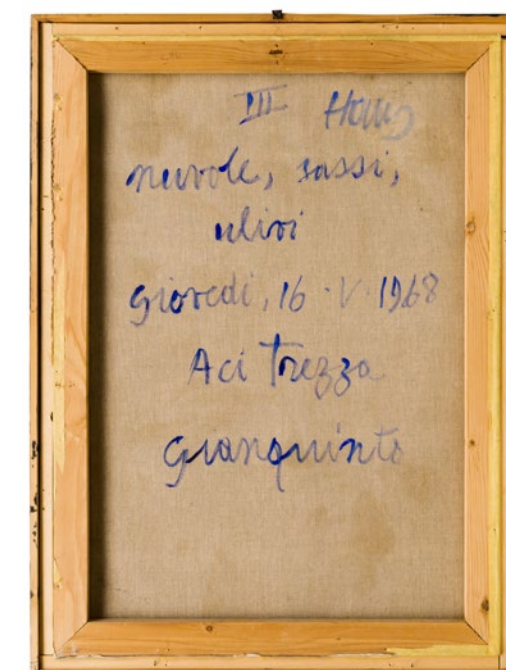 III
nuvole, sassi,
ulivi
giovedi, 16 · V · 1968
Aci Trezza
gianquinto